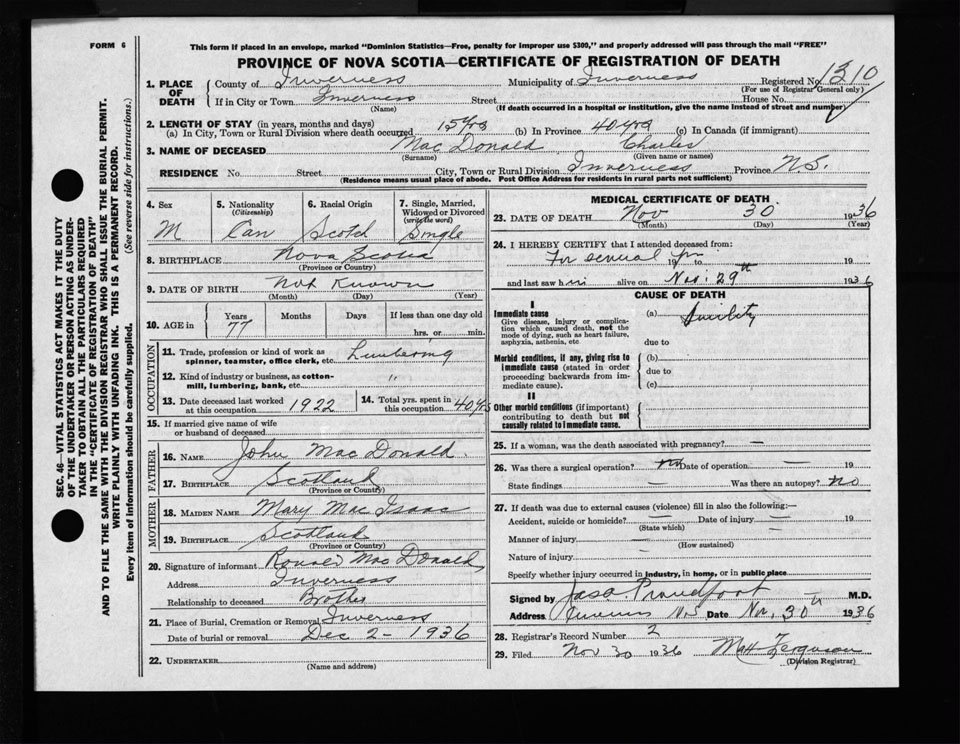 FORM 6
This form if placed in an envelope, marked "Dominion Statistics—Free, penalty for improper use $300," and properly addressed will pass through the mail "FREE"
PROVINCE OF NOVA SCOTIA—CERTIFICATE OF REGISTRATION OF DEATH
SEC. 46—VITAL STATISTICS ACT MAKES IT THE DUTY
OF THE UNDERTAKER OR PERSON ACTING AS UNDER-
TAKER TO OBTAIN ALL THE PARTICULARS REQUIRED
IN THE "CERTIFICATE OF REGISTRATION OF DEATH"
AND TO FILE THE SAME WITH THE DIVISION REGISTRAR WHO SHALL ISSUE THE BURIAL PERMIT.
WRITE PLAINLY WITH UNFADING INK. THIS IS A PERMANENT RECORD.
Every item of information should be carefully supplied. (See reverse side for instructions.)
1. PLACE OF DEATH County of Inverness Municipality of Inverness Registered No. 1310
(For use of Registrar General only)
If in City or Town Inverness Street House No.
(Name) (If death occurred in a hospital or institution, give the name instead of street and number)
2. LENGTH OF STAY (in years, months and days)
(a) In City, Town or Rural Division where death occurred 15 yrs (b) In Province 40 yrs (c) In Canada (if immigrant)
3. NAME OF DECEASED Mac Donald Charles
(Surname) (Given name or names)
RESIDENCE No. Street City, Town or Rural Division Inverness Province N.S.
(Residence means usual place of abode. Post Office Address for residents in rural parts not sufficient)
4. Sex M
5. Nationality (Citizenship) Can
6. Racial Origin Scotch
7. Single, Married, Widowed or Divorced (write the word) Single
8. BIRTHPLACE Nova Scotia
(Province or Country)
9. DATE OF BIRTH Not Known
(Month) (Day) (Year)
10. AGE in Years 77 Months Days If less than one day old
hrs. or min.
OCCUPATION
11. Trade, profession or kind of work as spinner, teamster, office clerk, etc. Lumbering
12. Kind of industry or business, as cotton-mill, lumbering, bank, etc. "
13. Date deceased last worked at this occupation 1922
14. Total yrs. spent in this occupation 40 yrs
15. If married give name of wife or husband of deceased
FATHER
16. NAME John Mac Donald
17. BIRTHPLACE Scotland
(Province or Country)
MOTHER
18. MAIDEN NAME Mary Mac Isaac
19. BIRTHPLACE Scotland
(Province or Country)
20. Signature of informant Ronald Mac Donald
Address Inverness
Relationship to deceased Brother
21. Place of Burial, Cremation or Removal Inverness
Date of burial or removal Dec 2 - 1936
22. UNDERTAKER
(Name and address)
MEDICAL CERTIFICATE OF DEATH
23. DATE OF DEATH Nov 30 1936
(Month) (Day) (Year)
24. I HEREBY CERTIFY that I attended deceased from:
For several yrs 19 to 19
and last saw him alive on Nov. 29th 1936
CAUSE OF DEATH
I
Immediate cause
Give disease, injury or complication which caused death, not the mode of dying, such as heart failure, asphyxia, asthenia, etc
(a) Senility
due to
Morbid conditions, if any, giving rise to immediate cause (stated in order proceeding backwards from immediate cause).
(b)
due to
(c)
II
Other morbid conditions (if important) contributing to death but not causally related to immediate cause.
25. If a woman, was the death associated with pregnancy? —
26. Was there a surgical operation? no Date of operation — 19
State findings — Was there an autopsy? no
27. If death was due to external causes (violence) fill in also the following:—
Accident, suicide or homicide? — Date of injury — 19
(State which)
Manner of injury —
(How sustained)
Nature of injury —
Specify whether injury occurred in industry, in home, or in public place
Signed by Jas. A. Proudfoot M.D.
Address Inverness N.S Date Nov. 30th 1936
28. Registrar's Record Number 2
29. Filed Nov 30 1936 Matt Ferguson
(Division Registrar)